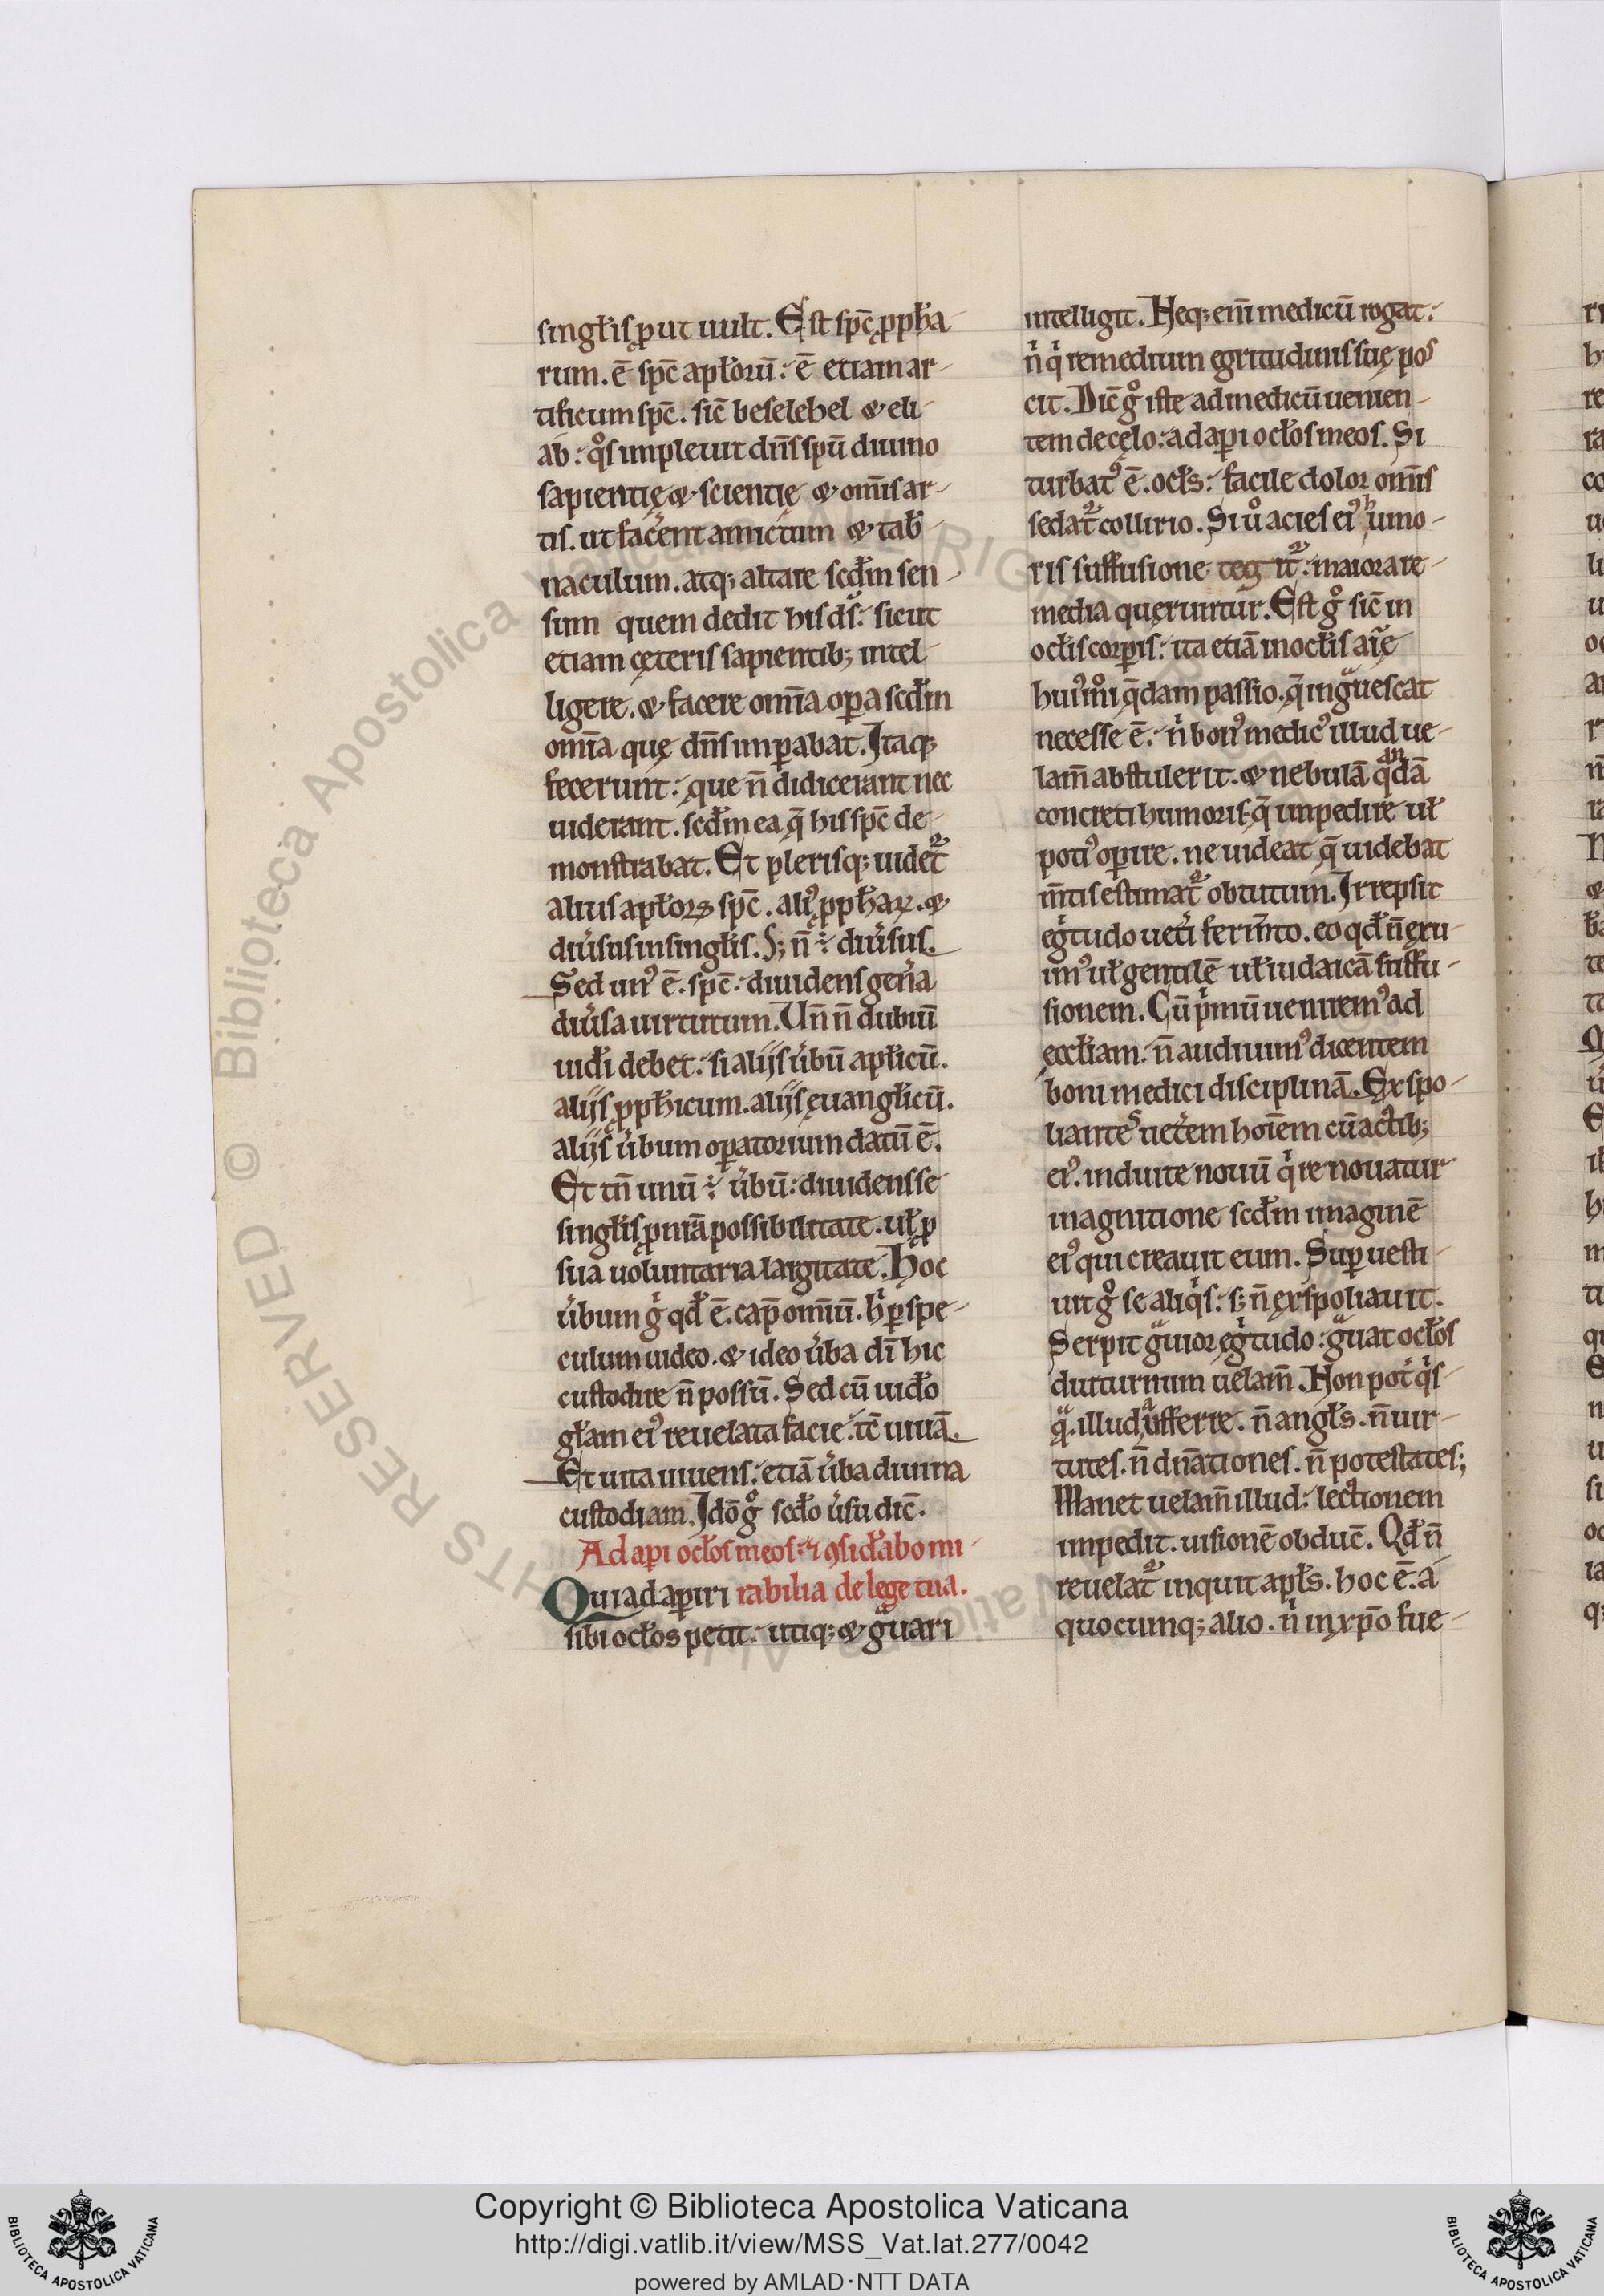 singłis ꝓut uult. Est sp̄c ꝓpħa
rum. ē sp̄c apło₎rū. ē etiam ar
tificum sp̄c. sic̄ beselehel & eli
ab. qͦs impleuit dn̄s spū diuino
sapientię & scientię & om̄is ar
tis. ut facerent amictum & tab
naculum. atq; altare scd̄m sen
sum quem dedit his d̄s. sicut
etiam cęteris sapientib; intel
ligere. & facere om̄ia oꝑa scd̄m
om̄ia quę dn̄s imꝑabat. Itaq;
fecerunt. que n̄ didicerant nec
uiderant. scd̄m ea q̄ his sp̄c de
monstrabat. Et plerisq; uidet᷑
alius apłoꝝ sp̄c. aliꝰ ꝓpħaꝝ. &
diu̓sus in singłis. S; n̄ ÷ diu̓sus.
Sed unꝰ ē. sp̄c. diuidens gen̓a
diu̓sa uirtutum. Un̄ n̄ dubiū
uidi̓ debet. si alijs u̓bū apłicū.
alijs ꝓpħicum. alijs euangłicū.
alijs u̓bum oꝑatorium datū ē.
Et tn̄ unū ÷ u̓bū. diuidens se
singłis ꝓ nr̄a possibilitate. uł ꝓ
sua uoluntaria largitate. Hoc
u̓bum gͥ qd̄ ē. cap̄ om̄iū. hͥ ꝑ spe
culum uideo. & ideo u̓ba dī hic
custodire n̄ possū. Sed cū uidero
głam eiꝰ reuelata facie. tc̄ uiuā.
Et uita uiuens. etiā u̓ba diuina
custodiam. Idō gͦ scd̄o u̓su dic̄.
Adaꝑi ocłos meos. ⁊ ꝯsid̓abo mi
Qui adaꝑiri rabilia de lege tua.
sibi ocłos petit. utiq; & gͣuari
intelligit. Neq; eni̅ medicū rogat.
nͥ qͥ remedium egritudinis suę pos
cit. Dic̄ gͦ iste ad medicū uenien
tem de cęlo. adaꝑi ocłos meos. Si
turbatꝰ ē. ocłs. facile dolor om̄is
sedat᷑ collirio. Si uͦ acies eiꝰ humo
ris suffusione tegit᷑. maiora re
media queruntur. Est gͦ sic̄ in
ocłis corꝑis. ita etiā in ocłis aīę
huiꝰmͦi q̄dam passio. q̄ ingͣuescat
necesse ē. nͥ bonꝰ medicꝰ illud ue
lam̄ abstulerit. & nebulā q̄dā
concreti humoris. q̄ impedire uł
potiꝰ oꝑire. ne uideat q̄ uidebat
m̄tis estimat᷑ obtutum. Irrepsit
egͥtudo ueti̓ ferm̄to. eo qd̄ n̄ exu
imꝰ uł gentilē uł iudaicā suffu
sionem. Cū pͥmū ueniremꝰ ad
eccłiam. n̄ audiuimꝰ dicentem
boni medici disciplinā. Exspo
liantes uete̓m hoīem cū actib;
eiꝰ. induite nouū qͥ renouatur
in agnitione scd̄m imaginē
eiꝰ qui creauit eum. Suꝑ uesti
uit gͦ se aliqͥs. s; n̄ exspoliauit.
Serpit gͣuior egͥtudo. gͣuat ocłos
diuturnum uelam̄. Non pot̓ qͥs
qͣ. illud aufferre. n̄ angłs. n̄ uir
tutes. n̄ dn̄ationes. n̄ potestates;
Manet uelam̄ illud. lectionem
impedit. uisionē obduc̄. Qd̄ n̄
reuelat᷑ inquit apłs. hoc ē. a
quocumq; alio. nͥ in xp̄o fue
Copyright © Biblioteca Apostolica Vaticana
http://digi.vatlib.it/view/MSS_Vat.lat.277/0042
powered by AMLAD·NTT DATA
BIBLIOTECA APOSTOLICA VATICANA
BIBLIOTECA APOSTOLICA VATICANA